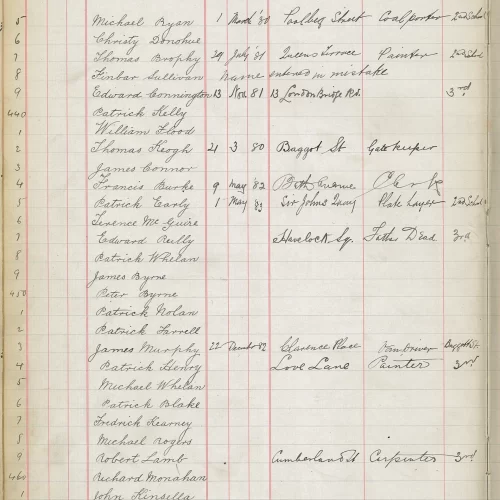 5 Michael Ryan 1 March '80 Poolbeg Street Coalporter 2nd School
6 Christy Donohue
7 Thomas Brophy 29 July '81 Queens Terrace Painter 2nd
8 Finbar Sullivan name entered in mistake
9 Edward Connington 13 Nov. 81 13 London Bridge Rd. 3rd
440 Patrick Kelly
1 William Flood
2 Thomas Keogh 21 3 80 Baggot St Gatekeeper
3 James Connor
4 Francis Burke 9 May '82 Bath Avenue Clerk
5 Patrick Carly 1 May 83 Sir Johns Quay Plate Layer 2nd School
6 Terence Mc Guire
7 Edward Reilly Havelock Sq. Father Dead 3rd
8 Patrick Whelan
9 James Byrne
450 Peter Byrne
1 Patrick Nolan
2 Patrick Farrell
3 James Murphy 22 82 Clarence Place
4 Patrick Henry Love Lane Painter 3rd
5 Michael Whelan
6 Patrick Blake
7 Fredrick Kearney
8 Michael Rogers
9 Robert Lamb Cumberland St Carpenter 3rd
460 Richard Monahan
1 John Kinsella